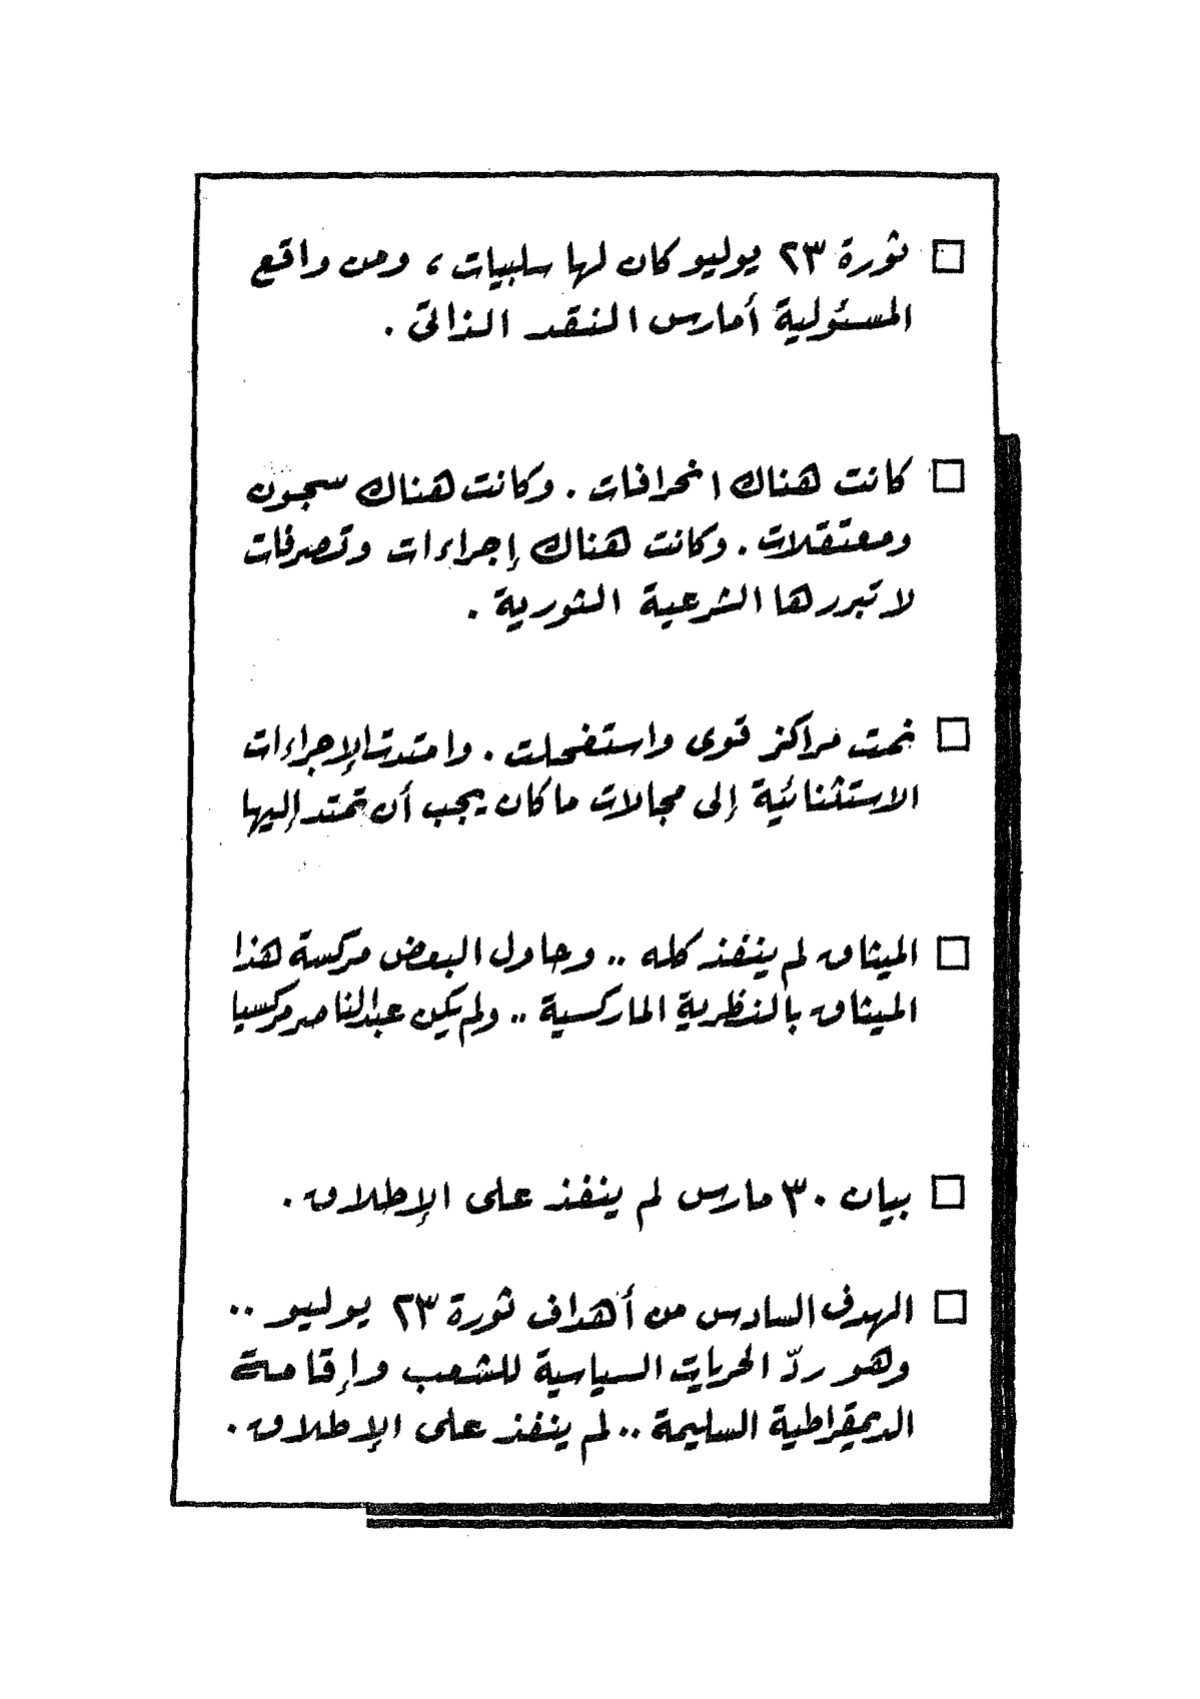 □ ثورة ٢٣ يوليو كان لها سلبيات، ومن واقع
المسئولية أمارس النقد الذاتى .
□ كانت هناك انحرافات . وكانت هناك سجون
ومعتقلات . وكانت هناك إجراءات وتصرفات
لا تبررها الشرعية الثورية .
□ نمت مراكز قوى واستفحلت . وامتدت الإجراءات
الاستثنائية إلى مجالات ما كان يجب أن تمتد إليها
□ الميثاق لم ينفذ كله .. وحاول البعض مركسة هذا
الميثاق بالنظرية الماركسية .. ولم يكن عبدالناصر مركسيا
□ بيان ٣٠ مارس لم ينفذ على الإطلاق .
□ الهدف السادس من أهداف ثورة ٢٣ يوليو ..
وهو ردّ الحريات السياسية للشعب وإقامة
الديمقراطية السليمة .. لم ينفذ على الإطلاق .